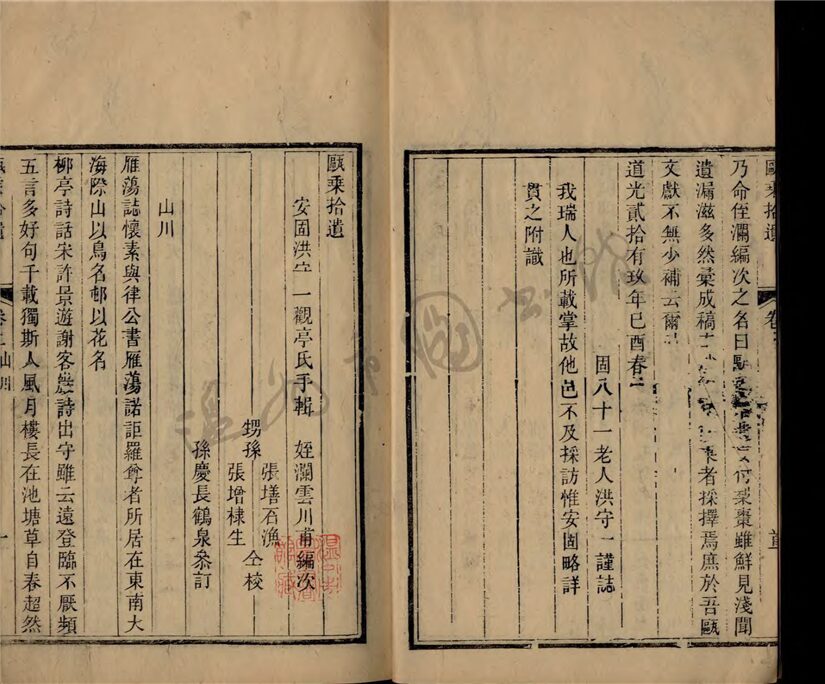 甌乘拾遺
乃命侄瀾編次之名曰甌
何棗棗雖鮮見淺聞
遺漏滋多然彙成稿
者採擇焉庶於吾甌
文獻不無少補云爾
道光貳拾有玖年己酉春
固八十一老人洪守一謹誌
我瑞人也所載掌故他邑不及採訪惟安固略詳
貫之附識
甌乘拾遺
安固洪守一觀亭氏手輯
姪瀾雲川甫編次
甥孫
張墡石漁
張增棣生
仝校
孫慶長鶴泉叅訂
山川
雁蕩誌懷素與律公書雁蕩諾詎羅尊者所居在東南大
海際山以鳥名邨以花名
柳亭詩話宋許景遊謝客巖詩出守雖云遠登臨不厭頻
五言多好句千載獨斯人風月樓長在池塘草自春超然
山川
一
溫州市圖書館